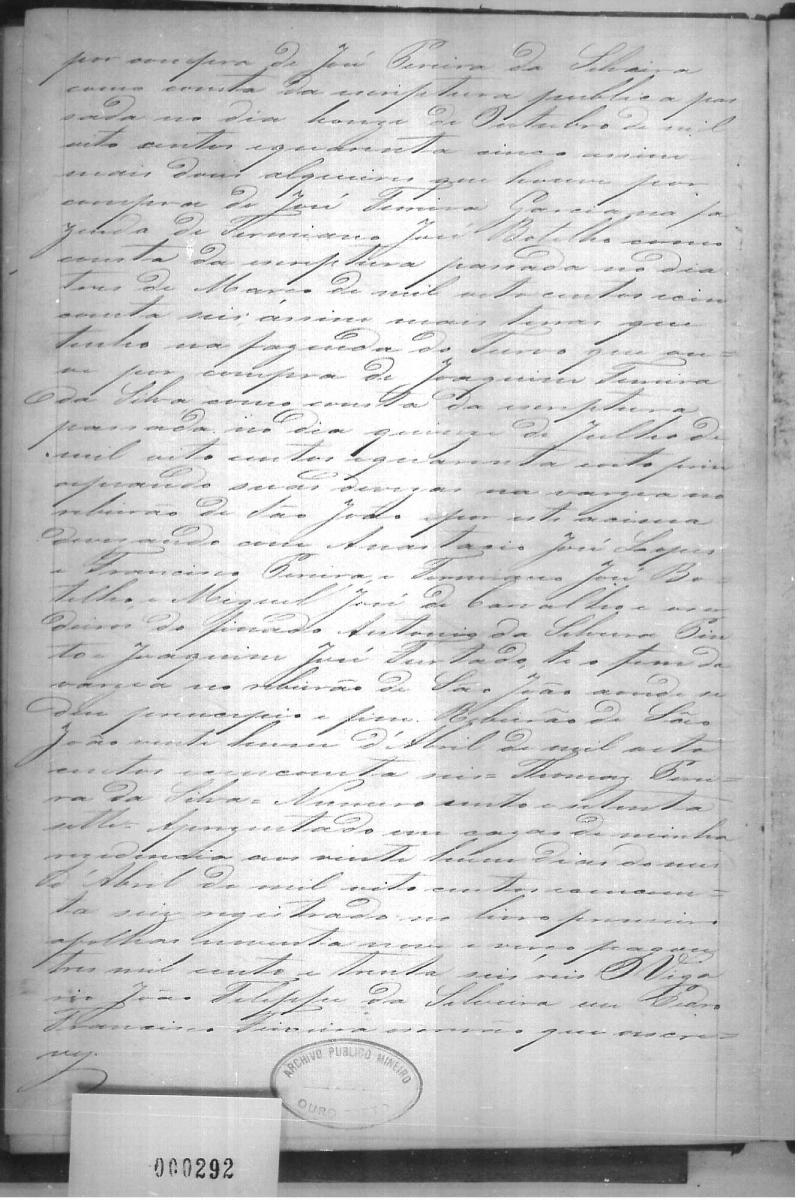 por compra de José Pereira da Silveira
como consta da escriptura publica pas
sada no dia honze de Outubro de mil
oito centos equarenta cinco assim
mais dous alqueires que houve por
compra de José Ferreira Garcia na fa
zenda de Firmiano José Botelho como
consta da escriptura passada no dia
tres de Março de mil oito centos ecin
coenta seis, assim mais terras que
tenho na fazenda do Turvo que ou=
ve por compra de Joaquim Ferreira
da Silva como consta da escriptura
passada no dia quinze de Julho de
mil oito centos equarenta oito prin
cipiando suas devizas na vargea no
ribeirão de São João epor este acima
devisando com Anastacio José Lopes
e Francisco Pereira, e José Bo=
telho, e Miguel José de Carvalho, e
deiros do finado Antonio da Silveira Pin
to e Joaquim José Furtado, te o fim da
vargea no ribeirão de São João aonde se
deu principio e fim. Ribeirão de São
João vinte hum d'Abril de mil oito
centos ecincoenta seis= Thomaz Ferrei=
ra da Silva= Numero cento e setenta
sette. Aprezentado em cazas de minha
rezidencia aos vinte hum dias do mes
d'Abril de mil oito centos ecincoen=
ta seiz registrado no livro primeiro
afolhas noventa nove e verso pagou
tres mil cento e trenta seis réis O Viga
rio João Felippe da Silveira eu Pedro
Francisco escrivão que escre=
vy.
ARCHIVO PUBLICO MINEIRO
OURO PRETO
000292